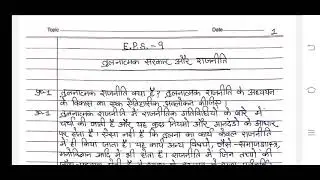 Topic
Date
1
E.P.S. -9
तुलनात्मक सरकार और राजनीति
प्र०-1 तुलनात्मक राजनीति क्या है? तुलनात्मक राजनीति के अध्ययन
के विकास का एक ऐतिहासिक अवलोकन कीजिए।
उ०-1 तुलनात्मक राजनीति में राजनीतिक गतिविधियों के बारे में
चर्चा की जाती है और यह कुछ नियमों और मानदंडों के आधार
पर होता है। ऐसा नहीं है कि तुलना का कार्य केवल राजनीति
में ही किया जाता है। यह कार्य अन्य विषयों, जैसे - समाजशास्त्र,
मनोविज्ञान आदि में भी होता है। राजनीति में जिन तथ्यों की